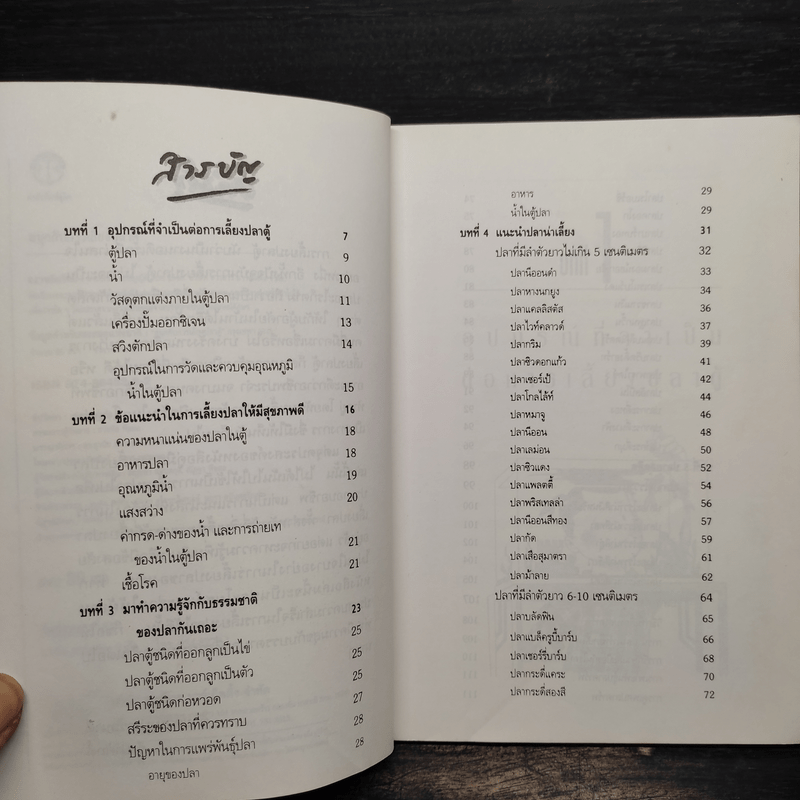 สารบัญ
บทที่ 1 อุปกรณ์ที่จำเป็นต่อการเลี้ยงปลาตู้ 7
ตู้ปลา 9
น้ำ 10
วัสดุตกแต่งภายในตู้ปลา 11
เครื่องปั๊มออกซิเจน 13
สวิงตักปลา 14
อุปกรณ์ในการวัดและควบคุมอุณหภูมิ
น้ำในตู้ปลา 15
บทที่ 2 ข้อแนะนำในการเลี้ยงปลาให้มีสุขภาพดี 16
ความหนาแน่นของปลาในตู้ 18
อาหารปลา 18
อุณหภูมิน้ำ 19
แสงสว่าง 20
ค่ากรด-ด่างของน้ำ และการถ่ายเท
ของน้ำในตู้ปลา 21
เชื้อโรค 21
บทที่ 3 มาทำความรู้จักกับธรรมชาติ
ของปลากันเถอะ 23
ปลาตู้ชนิดที่ออกลูกเป็นไข่ 25
ปลาตู้ชนิดที่ออกลูกเป็นตัว 25
ปลาตู้ชนิดก่อหวอด 25
สรีระของปลาที่ควรทราบ 27
ปัญหาในการแพร่พันธุ์ปลา 28
อายุของปลา 28
อาหาร 29
น้ำในตู้ปลา 29
บทที่ 4 แนะนำปลาน่าเลี้ยง 31
ปลาที่มีลำตัวยาวไม่เกิน 5 เซนติเมตร 32
ปลานีออนดำ 33
ปลาหางนกยูง 34
ปลาแคลลิสตัส 36
ปลาไวท์คลาวด์ 37
ปลากริม 39
ปลาซิวดอกแก้ว 41
ปลาเซอร์เป้ 42
ปลาโกลไล้ท์ 44
ปลาหมาจู 46
ปลานีออน 48
ปลาเลม่อน 50
ปลาซิวแดง 52
ปลาแพลตตี้ 54
ปลาพริสเทลล่า 56
ปลานีออนสีทอง 57
ปลากัด 59
ปลาเสือสุมาตรา 61
ปลาม้าลาย 62
ปลาที่มีลำตัวยาว 6-10 เซนติเมตร 64
ปลาบลัดฟิน 65
ปลาแบล็ครูบี้บาร์บ 66
ปลาเชอร์รี่บาร์บ 68
ปลากระดี่แคระ 70
ปลากระดี่สองสี 72